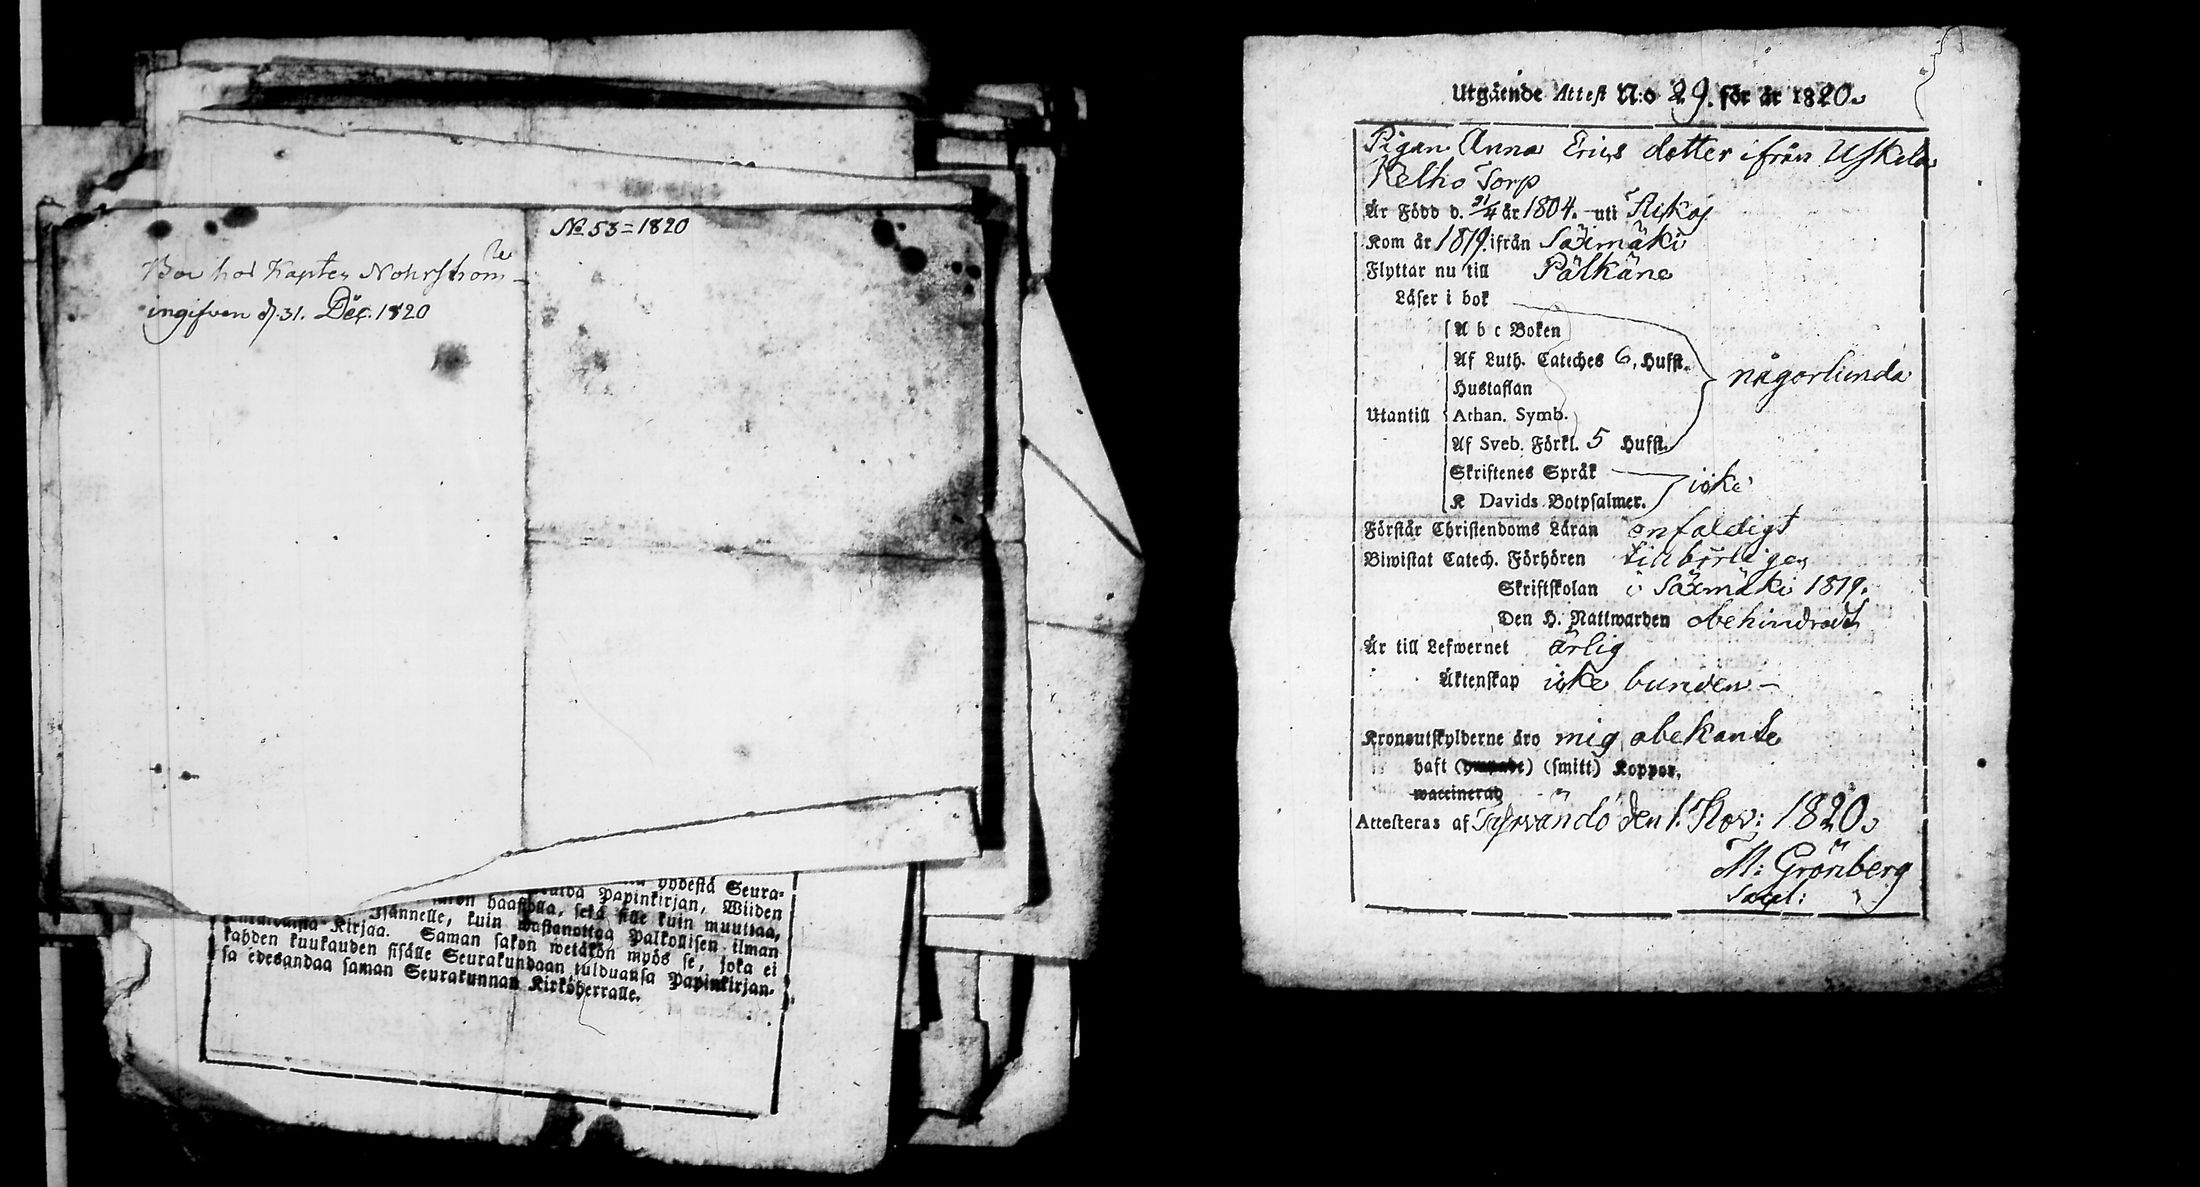 No 53 = 1820
Bor hos Kapten Nohrström
ingifven d. 31. Dec. 1820
yhdestä Seura-
Papinkirjan, Wiiden
haastolla, sekä sille kuin muuttaa,
Kirjaa. Isännelle, kuin wastanottaa Palkollisen ilman
kahden kuukauden sisälle Seurakundaan tulduansa Papinkirjan-
Saman sakon wetäkön myös se, joka ei
sa edesandaa saman Seurakunnan Kirkoherralle.
Utgående Attest N:o 29. för år 1820.
Pigan Anna Erics dotter ifrån Uskela
Kelho Torp
Är Född d. 21/4 år 1804. uti
Kom år 1819 ifrån Säxmäki
Flyttar nu till Pälkäne
Läser i bok
A b c Boken
Af Luth. Cateches 6, Hufst.
Hustaflan
någorlunda
Utantill Athan. Symb.
Af Sveb. Förkl. 5 Hufst.
Skriftenes Språk
icke
K Davids Botpsalmer.
Förstår Christendoms Läran enfaldigt
Biwistat Catech. Förhören tillbörligen
Skriftskolan i Säxmäki 1819.
Den H. Nattwarden obehindradt
Är till Lefwernet ärlig
Äktenskap icke bunden –
Kronoutskylderne äro mig obekante
haft (smitt) Koppor,
waccinerad
Attesteras af Tyrwändö den 1. Nov: 1820.
M: Grönberg
Sacel: